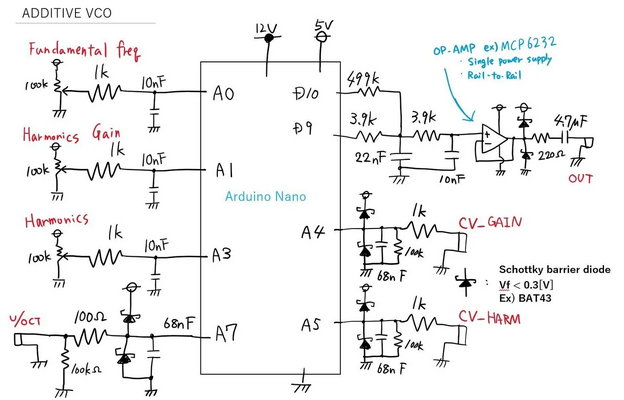 ADDITIVE VCO
12V
5V
Fundamental freq
1k
10nF
100k
A0
Harmonics Gain
1k
10nF
100k
A1
Harmonics
1k
10nF
100k
A3
V/OCT
100Ω
68nF
100kΩ
A7
Arduino Nano
D10
499k
D9
3.9k
3.9k
22nF
10nF
OP-AMP ex) MCP6232
・Single power supply
・Rail-to-Rail
4.7μF
220Ω
OUT
A4
1k
CV_GAIN
100k
68nF
A5
1k
CV_HARM
100k
68nF
: Schottky barrier diode
Vf < 0.3[V]
Ex) BAT43